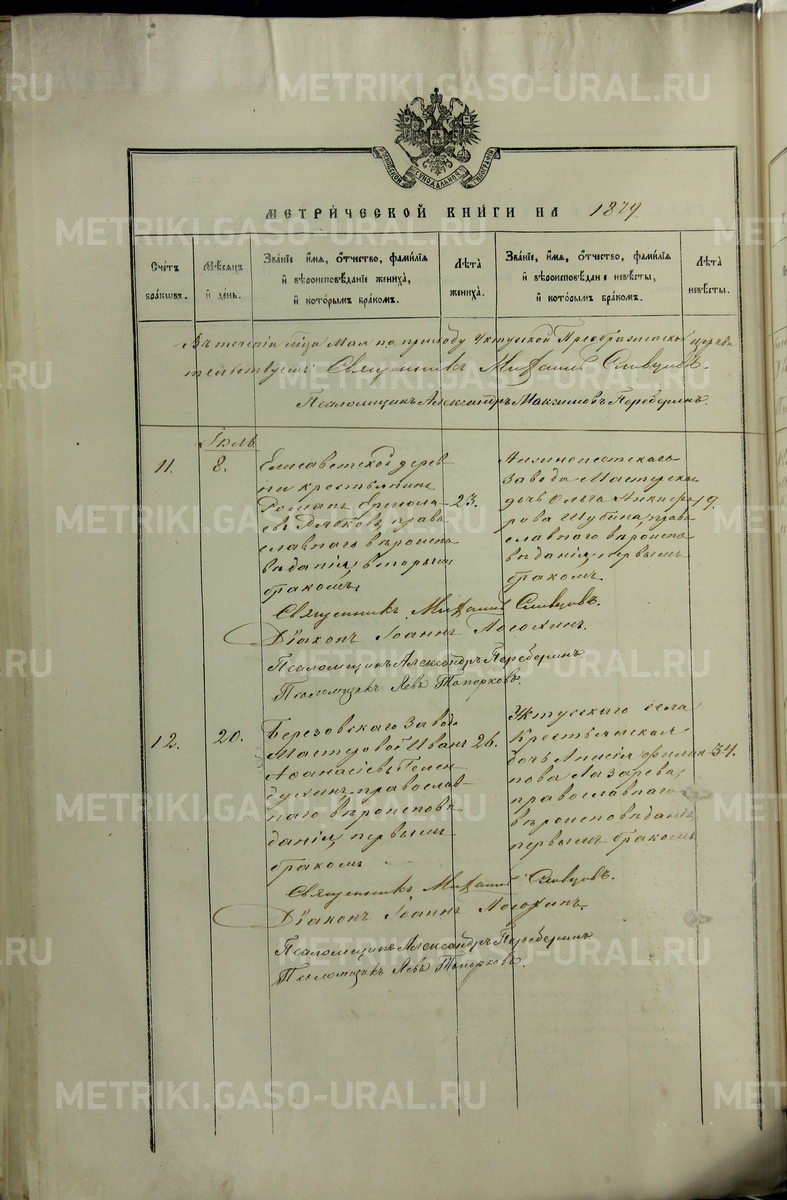 METRIKI.GASO-URAL.RU
МЕТРИ́ЧЕСКОЙ КНИ́ГИ НА 1879
Сче́тъ бра́ковъ.
Мѣ́сяцъ и҆ де́нь.
Зва́нїе, и҆́мя, ѻ҆́тчество, фами́лїя и҆ вѣроисповѣ́данїе жениха̀, и҆ кото́рымъ бра́комъ.
Лѣ́та жениха̀.
Зва́нїе, и҆́мя, ѻ҆́тчество, фами́лїя и҆ вѣроисповѣ́данїе невѣ́сты, и҆ кото́рымъ бра́комъ.
Лѣ́та невѣ́сты.
Въ теченіи м-ца Мая по приходу Уктусской Преображенской церкви
Священникъ Михаилъ Словцовъ.
Псаломщикъ Александръ Максимовъ Переберинъ.
Іюль
11.
8.
Елисаветской дерев
ни крестьянинъ
Романъ Ермола
евъ право
славнаго вѣроиспо
вѣданія, вторымъ
бракомъ.
23.
Нижнеисетскаго
Завода Мастерская
дочь Ольга Анкифо
рова Шубина, право
славнаго вѣроиспо
вѣданія, первымъ
бракомъ.
19.
Священникъ Михаилъ Словцовъ.
Діаконъ Іоаннъ
Псаломщикъ Александръ Переберинъ.
Псаломщикъ Левъ Топорковъ.
12.
20.
Березовскаго Завода
Мастеровой Иванъ
Аѳанасіевъ Гилен
духинъ, православ
наго вѣроисповѣ
данія, первымъ
бракомъ
26.
Уктусскаго села
Крестьянская
дочь Анисія Филип
пова Лазарева,
православнаго
вѣроисповѣданія,
первымъ бракомъ
34.
Священникъ Михаилъ Словцовъ.
Діаконъ Іоаннъ
Псаломщикъ Александръ Переберинъ
Псаломщикъ Левъ Топорковъ.